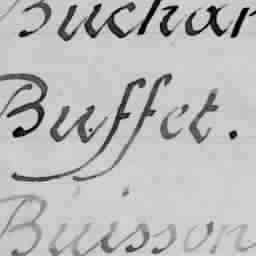 Buchar
Buffet.
Buisson